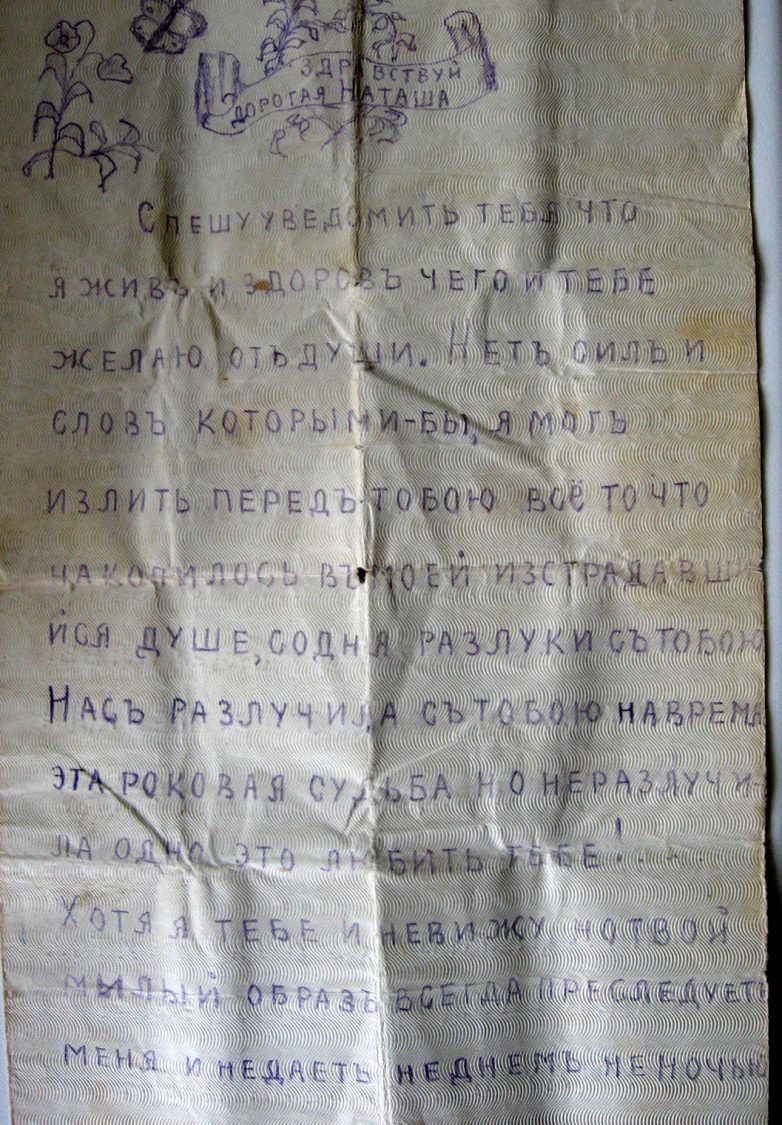 ЗДРАВСТВУЙ
ДОРОГАЯ НАТАША
СПЕШУ УВЕДОМИТЬ ТЕБЯ ЧТО
Я ЖИВЪ И ЗДОРОВЪ ЧЕГО И ТЕБЕ
ЖЕЛАЮ ОТЪ ДУШИ. НЕТЪ СИЛЪ И
СЛОВЪ КОТОРЫМИ-БЫ, Я МОГЪ
ИЗЛИТЬ ПЕРЕДЪ ТОБОЮ ВСЁ ТО ЧТО
НАКОПИЛОСЬ ВЪ МОЕЙ ИЗСТРАДАВШИ
ЙСЯ ДУШЕ, СО ДНЯ РАЗЛУКИ СЪ ТОБОЮ
НАСЪ РАЗЛУЧИЛА СЪ ТОБОЮ НАВРЕМЯ
ЭТА РОКОВАЯ СУДЬБА НО НЕРАЗЛУЧИ-
ЛА ОДНО ЭТО ЛЮБИТЬ ТЕБЕ!....
ХОТЯ Я ТЕБЕ И НЕВИЖУ НО ТВОЙ
МИЛЫЙ ОБРАЗЪ ВСЕГДА ПРЕСЛЕДУЕТЪ
МЕНЯ И НЕДАЕТЪ НЕДНЕМЪ НЕНОЧЬЮ